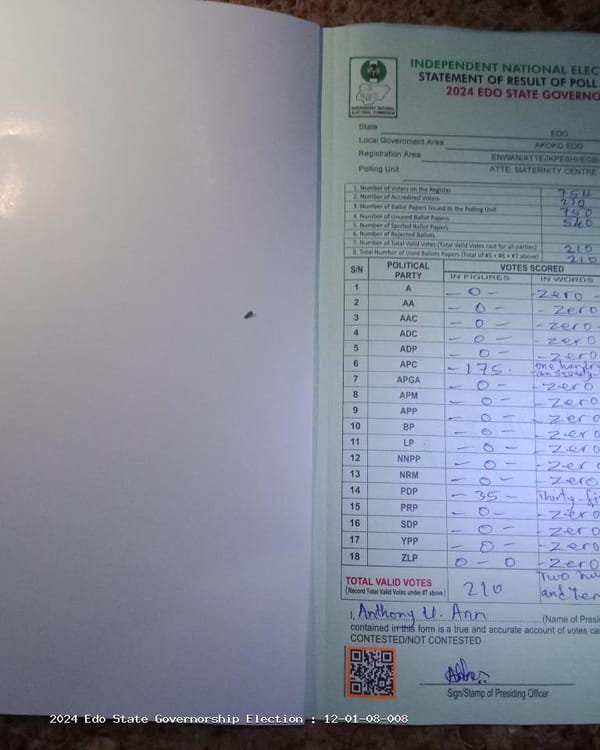 INDEPENDENT NATIONAL ELEC
STATEMENT OF RESULT OF POLL
2024 EDO STATE GOVERNO
INDEPENDENT NATIONAL
ELECTORAL COMMISSION
State EDO
Local Government Area AKOKO EDO
Registration Area ENWAN/ATTE/IKPESHI/EGBI
Polling Unit ATTE, MATERNITY CENTRE
1. Number of Voters on the Register 754
2. Number of Accredited Voters 210
3. Number of Ballot Papers Issued to the Polling Unit 750
4. Number of Unused Ballot Papers 540
5. Number of Spoiled Ballot Papers
6. Number of Rejected Ballots
7. Number of Total Valid Votes (Total Valid Votes cast for all parties) 210
8. Total Number of Used Ballots Papers (Total of #5 + #6 + #7 above) 210
S/N POLITICAL PARTY VOTES SCORED
IN FIGURES IN WORDS
1 A - 0 - - Zero -
2 AA - 0 - - Zero
3 AAC - 0 - - Zero -
4 ADC - 0 - - Zero
5 ADP - 0 - - Zero
6 APC - 175 - one hundre
7 APGA - 0 - - Zero
8 APM - 0 - - Zero
9 APP - 0 - - Zero
10 BP - 0 - - Zero
11 LP - 0 - - Zero
12 NNPP - 0 - - Zero
13 NRM - 0 - - Zero
14 PDP - 35 - Thirty-fi
15 PRP - 0 - - Zero
16 SDP - 0 - - Zero
17 YPP - 0 - - Zero
18 ZLP 0 - 0 - Zero
TOTAL VALID VOTES 210 Two hu
(Record Total Valid Votes under #7 above) and Ten
I, Anthony U. Ann (Name of Presi
contained in this form is a true and accurate account of votes cas
CONTESTED/NOT CONTESTED
Sign/Stamp of Presiding Officer
2024 Edo State Governorship Election : 12-01-08-008